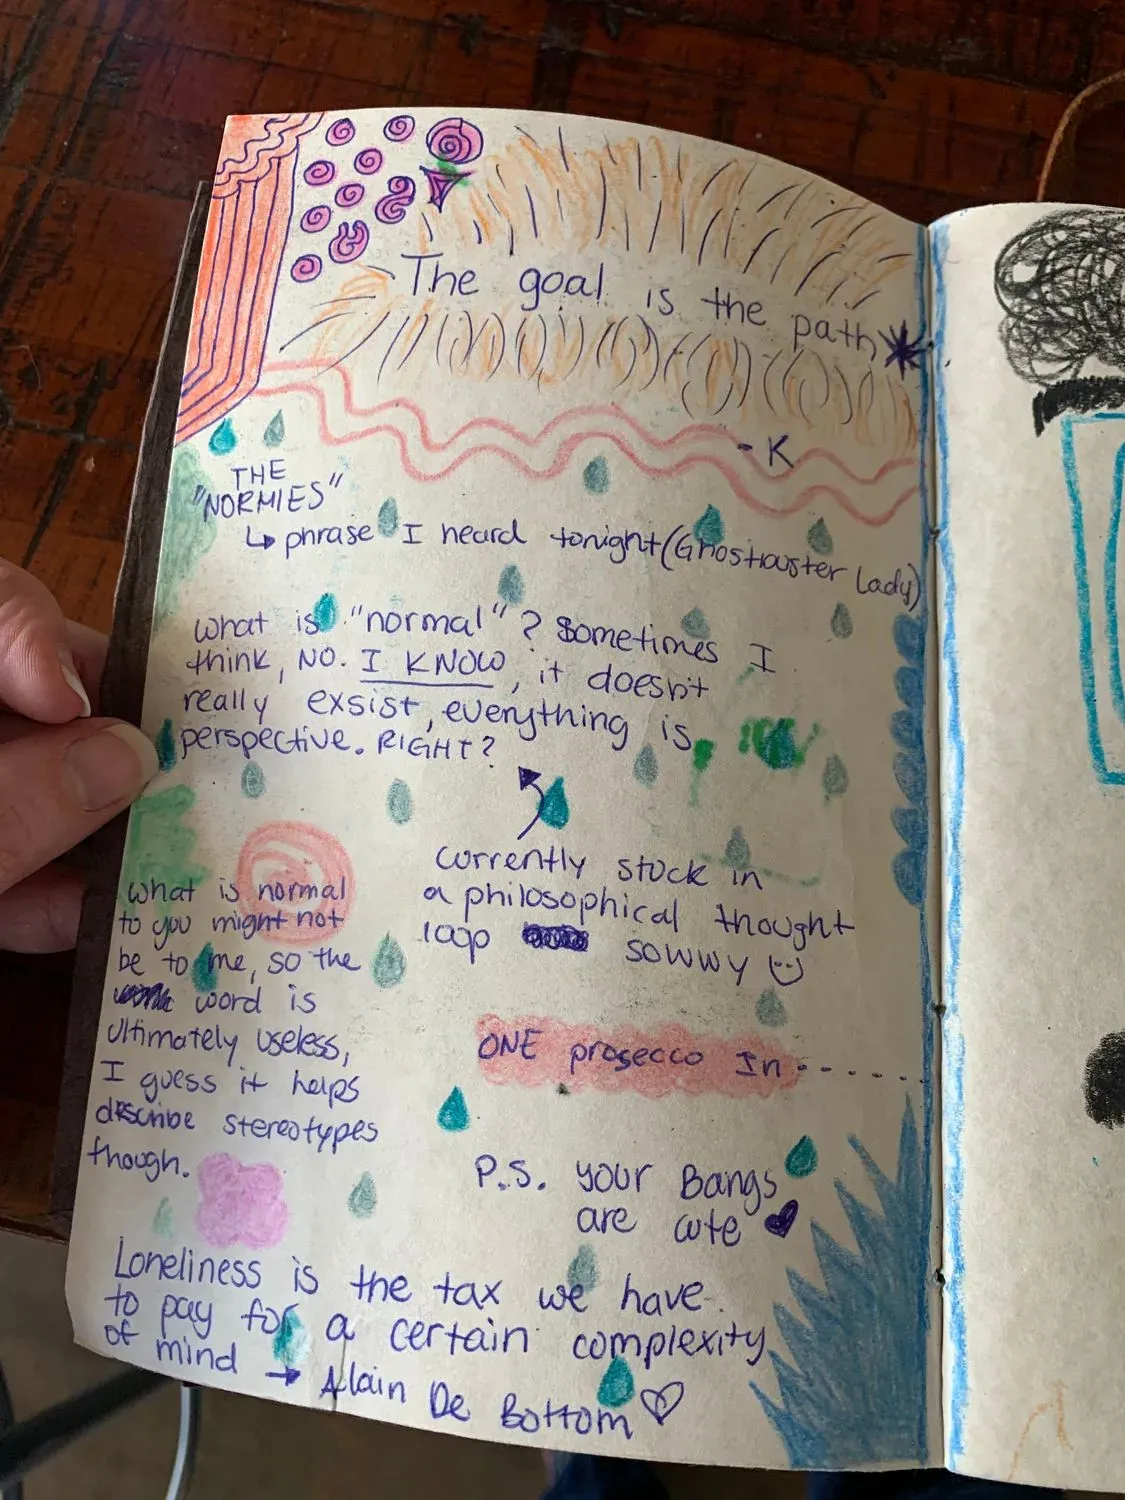 The goal is the path
- K
THE
"NORMIES"
↳ phrase I heard tonight (Ghostbuster Lady)
What is "normal"? Sometimes I
think, NO. I KNOW, it doesn't
really exsist, everything is
perspective. RIGHT?
currently stuck in
a philosophical thought
loop sowwy
What is normal
to you might not
be to me, so the
word is
ultimately useless,
I guess it helps
describe stereotypes
though.
ONE prosecco In ......
P.S. your Bangs
are cute
Loneliness is the tax we have
to pay for a certain complexity
of mind → Alain De Bottom